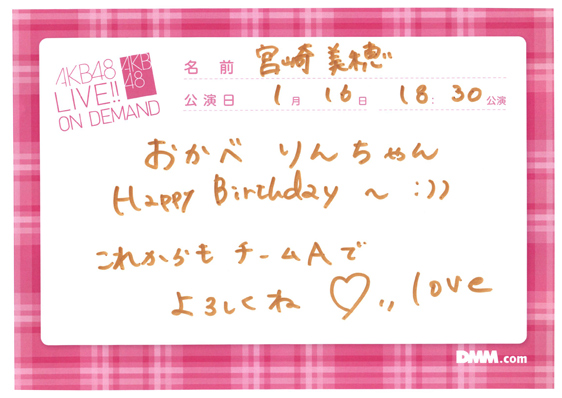 AKB48
LIVE!!
ON DEMAND
AKB
48
名前 宮崎美穂
公演日 1月 16日 18:30公演
おかべ りんちゃん
Happy Birthday ~ :))
これからも チームAで
よろしくね ♡,, love
DMM.com